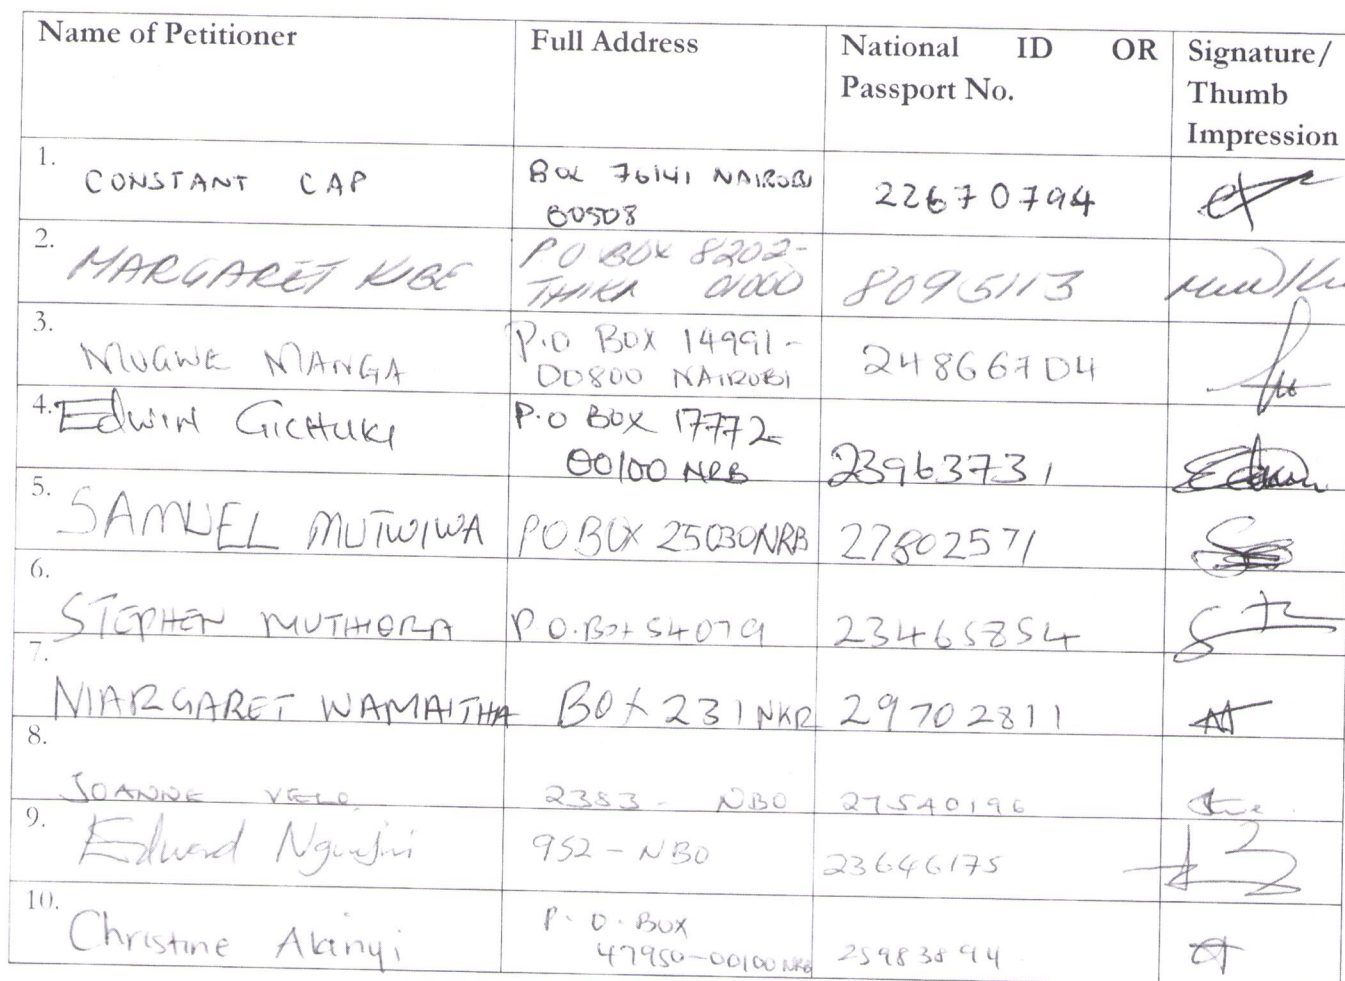 Name of Petitioner
Full Address
National ID OR
Passport No.
Signature/
Thumb
Impression
1.
CONSTANT CAP
BOX 76141 NAIROBI
00508
22670794
2.
MARGARET KIBE
P O BOX 8202-
THIKA 01000
8095113
3.
MUGWE MANGA
P.O BOX 14991-
00800 NAIROBI
24866704
4.
Edwin GICHUKI
P.O BOX 17772-
00100 NRB
23963731
5.
SAMUEL MUTWIWA
PO BOX 25030 NRB
27802571
6.
STEPHEN MUTHORA
P.O.Box 54079
23465854
7.
MARGARET WAMAITHA
BOX 231 NKR
29702811
8.
JOANNE
2383 - NBO
27540196
9.
Edward
952 - NBO
23646175
10.
Christine Akinyi
P.O.BOX
47950-00100 NRB
25983894